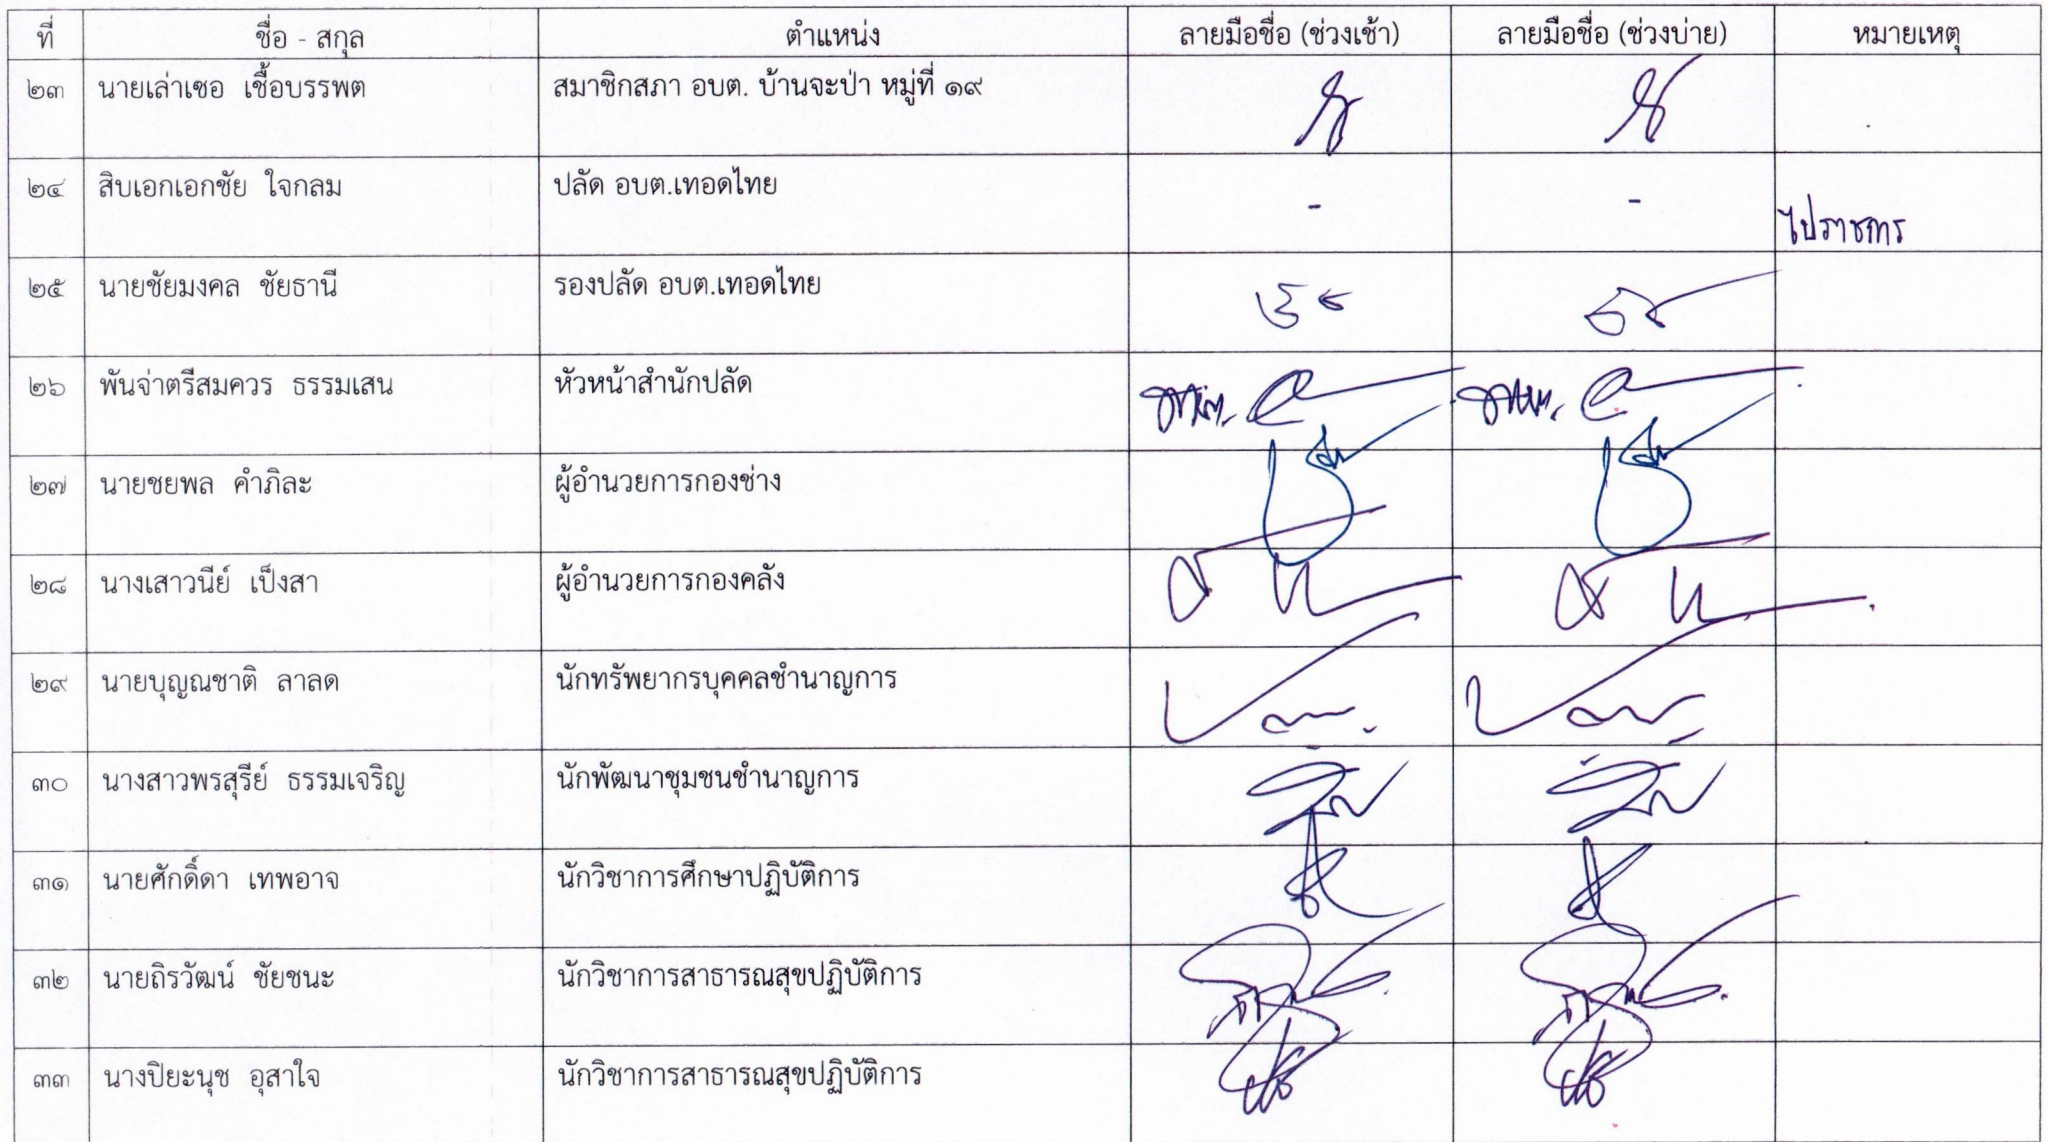 ที่ ชื่อ - สกุล ตำแหน่ง ลายมือชื่อ (ช่วงเช้า) ลายมือชื่อ (ช่วงบ่าย) หมายเหตุ
๒๓ นายเล่าเซอ เชื้อบรรพต สมาชิกสภา อบต. บ้านจะป่า หมู่ที่ ๑๙
๒๔ สิบเอกเอกชัย ใจกลม ปลัด อบต.เทอดไทย - - ไปราชการ
๒๕ นายชัยมงคล ชัยธานี รองปลัด อบต.เทอดไทย
๒๖ พันจ่าตรีสมควร ธรรมเสน หัวหน้าสำนักปลัด
๒๗ นายชยพล คำภิละ ผู้อำนวยการกองช่าง
๒๘ นางเสาวนีย์ เป็งสา ผู้อำนวยการกองคลัง
๒๙ นายบุญณชาติ ลาลด นักทรัพยากรบุคคลชำนาญการ
๓๐ นางสาวพรสุรีย์ ธรรมเจริญ นักพัฒนาชุมชนชำนาญการ
๓๑ นายศักดิ์ดา เทพอาจ นักวิชาการศึกษาปฏิบัติการ
๓๒ นายถิรวัฒน์ ชัยชนะ นักวิชาการสาธารณสุขปฏิบัติการ
๓๓ นางปิยะนุช อุสาใจ นักวิชาการสาธารณสุขปฏิบัติการ